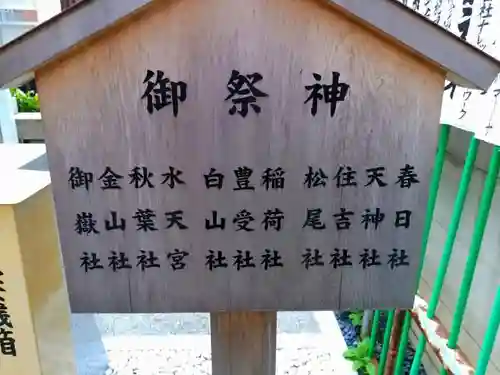 御祭神
春日社
天神社
住吉社
松尾社
稲荷社
豊受社
白山社
水天宮
秋葉社
金山社
御嶽社